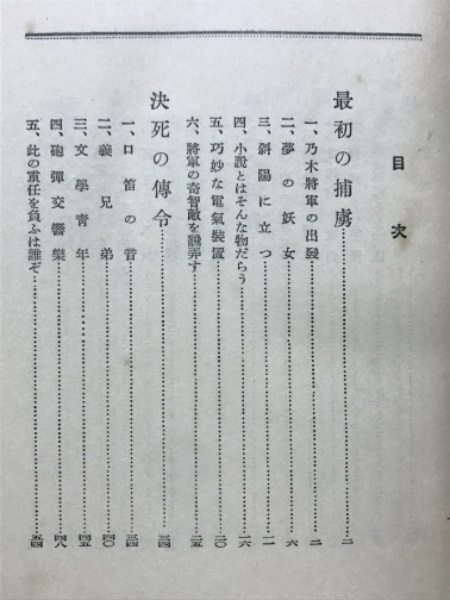 目次
最初の捕虜……二
一、乃木將軍の出發……二
二、夢の妖女……六
三、斜陽に立つ……一一
四、小說とはそんな物だらう……一六
五、巧妙な電氣裝置……二〇
六、將軍の奇智敵を飜弄す……二五
決死の傳令……三四
一、口笛の音……三四
二、義兄弟……四〇
三、文學靑年……四五
四、砲彈交響樂……四八
五、此の重任を負ふは誰ぞ……五四